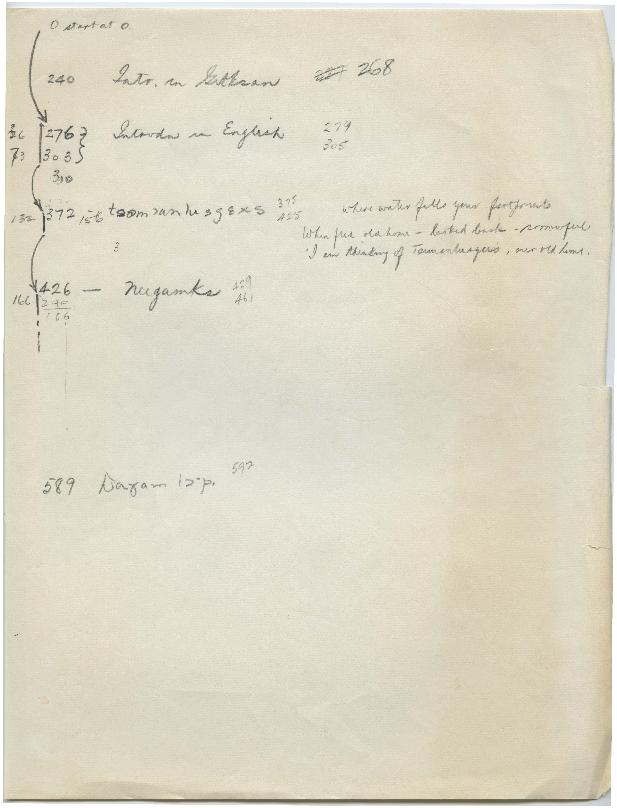 0 start at 0.
240 Intro. in Gitksan 268
276 Introdn in English 279
303 305
310
132 372 156 tsəmʒanhəsgɛxs 375 425 where water falls your footprints
When flee old home - looked back - sorrowful
3 I am thinking of , our old home.
166 426 — Neegamks 429
240 461
166
589 597